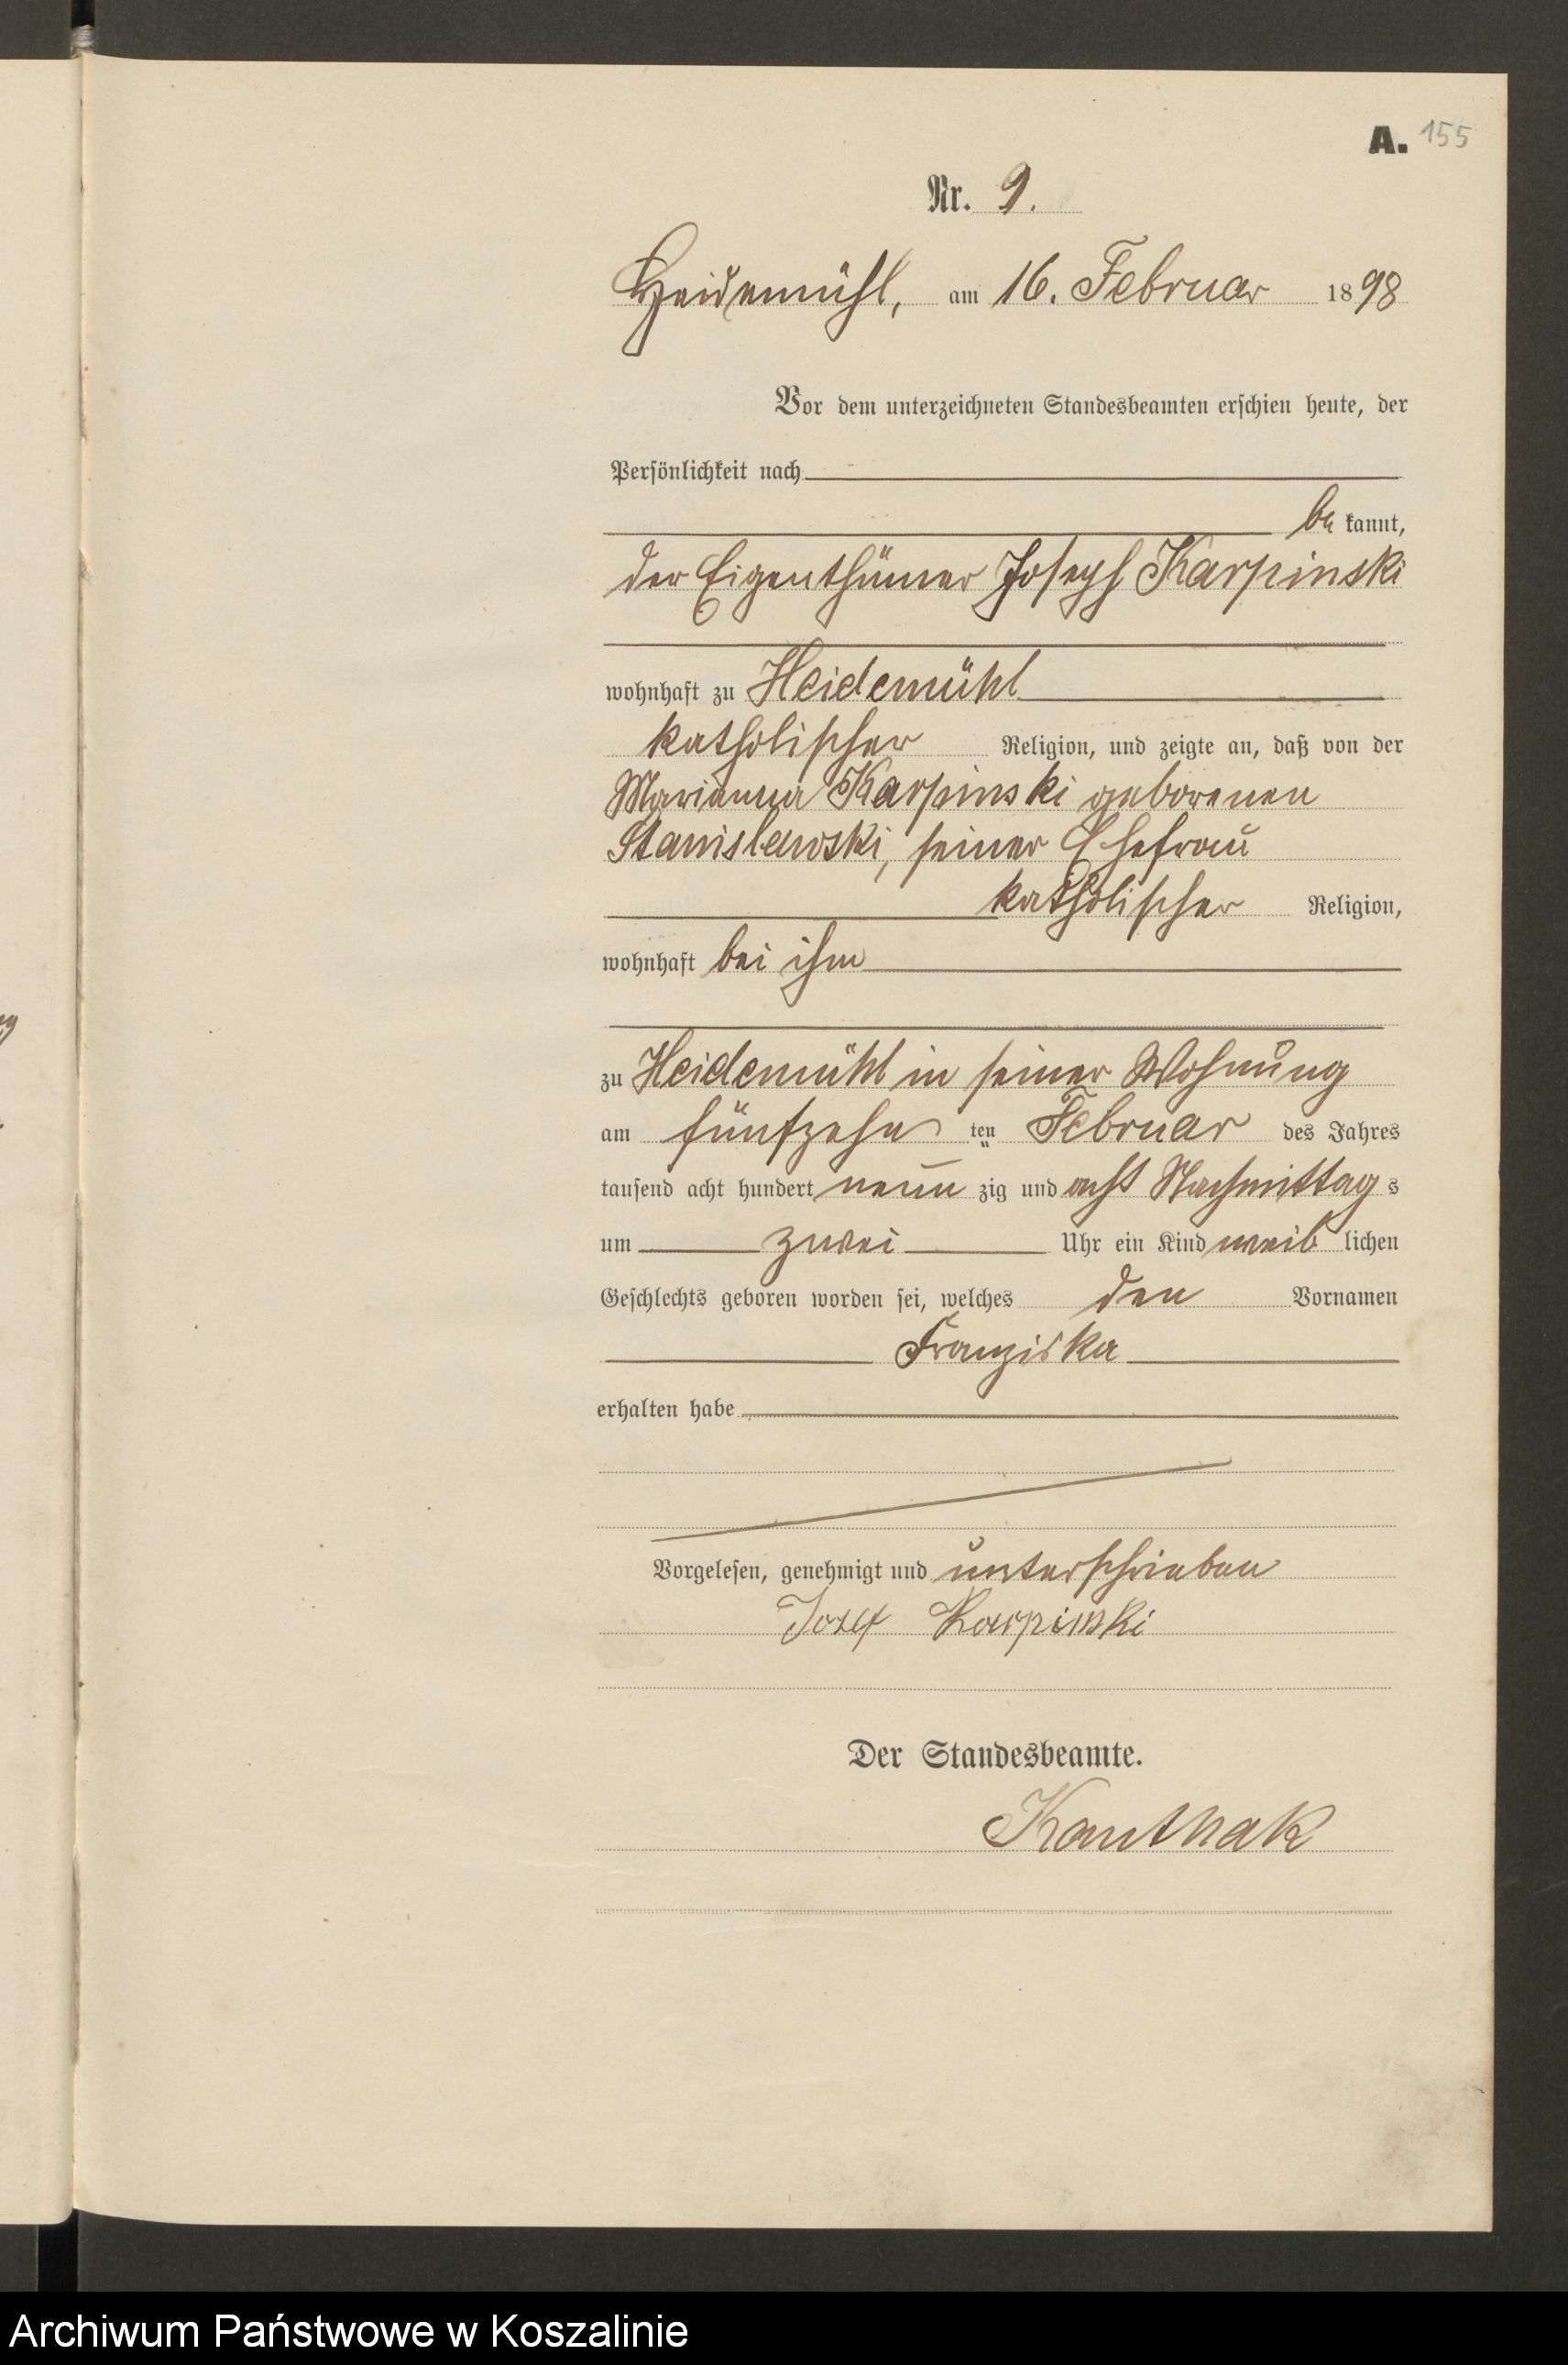 A. 155
Nr. 9.
Heidemühl, am 16. Februar 1898
Vor dem unterzeichneten Standesbeamten erschien heute, der
Persönlichkeit nach
be kannt,
der Eigenthümer Joseph Karpinski
wohnhaft zu Heidemühl
katholischer Religion, und zeigte an, daß von der
Marianna Karpinski geborenen
Stanislawski, seiner Ehefrau
katholischer Religion,
wohnhaft bei ihm
zu Heidemühl in seiner Wohnung
am fünfzehn ten Februar des Jahres
tausend acht hundert neun zig und acht Nachmittag s
um zwei Uhr ein Kind weib lichen
Geschlechts geboren worden sei, welches den Vornamen
Franziska
erhalten habe
Vorgelesen, genehmigt und unterschrieben
Josef Karpinski
Der Standesbeamte.
Kauthak
Archiwum Państwowe w Koszalinie